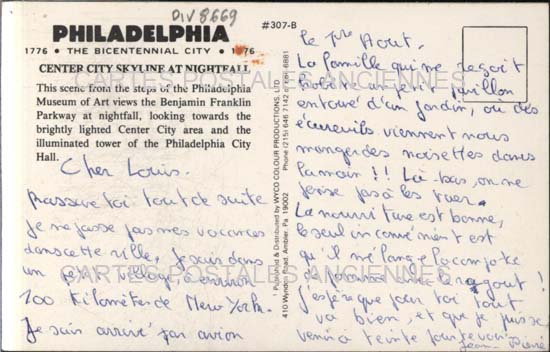 DIV 8669
PHILADELPHIA
1776 • THE BICENTENNIAL CITY • 1976
CENTER CITY SKYLINE AT NIGHTFALL
This scene from the steps of the Philadelphia
Museum of Art views the Benjamin Franklin
Parkway at nightfall, looking towards the
brightly lighted Center City area and the
illuminated tower of the Philadelphia City
Hall.
Cher Louis.
rassure toi tout de suite
je ne passe pas mes vacances
dans cette ville, je suis dans
un petit village à environ
100 Kilomètres de New York.
Je suis arrivé par avion
#307-B
Published & Distributed by WYCO COLOUR PRODUCTIONS, LTD
410 Wyndon Road, Ambler, Pa. 19002 Phone (215) 646 7142 6881
le 1er Aout.
La famille qui me reçoit
habite un petit pavillon
entouré d'un jardin, où des
écureuils viennent nous
manger des noisettes dans
la main !! Là-bas, on ne
pas à les tuer.
La nourriture est bonne,
le seul inconvénient est
qu'il mélange la compote
de pomme avec le ragout !
j'espère que pour toi tout
va bien, et que je puisse
venir à te revoir.
Jean-Pierre
CARTES POSTALES ANCIENNES
CARTES POSTALES ANCIENNES